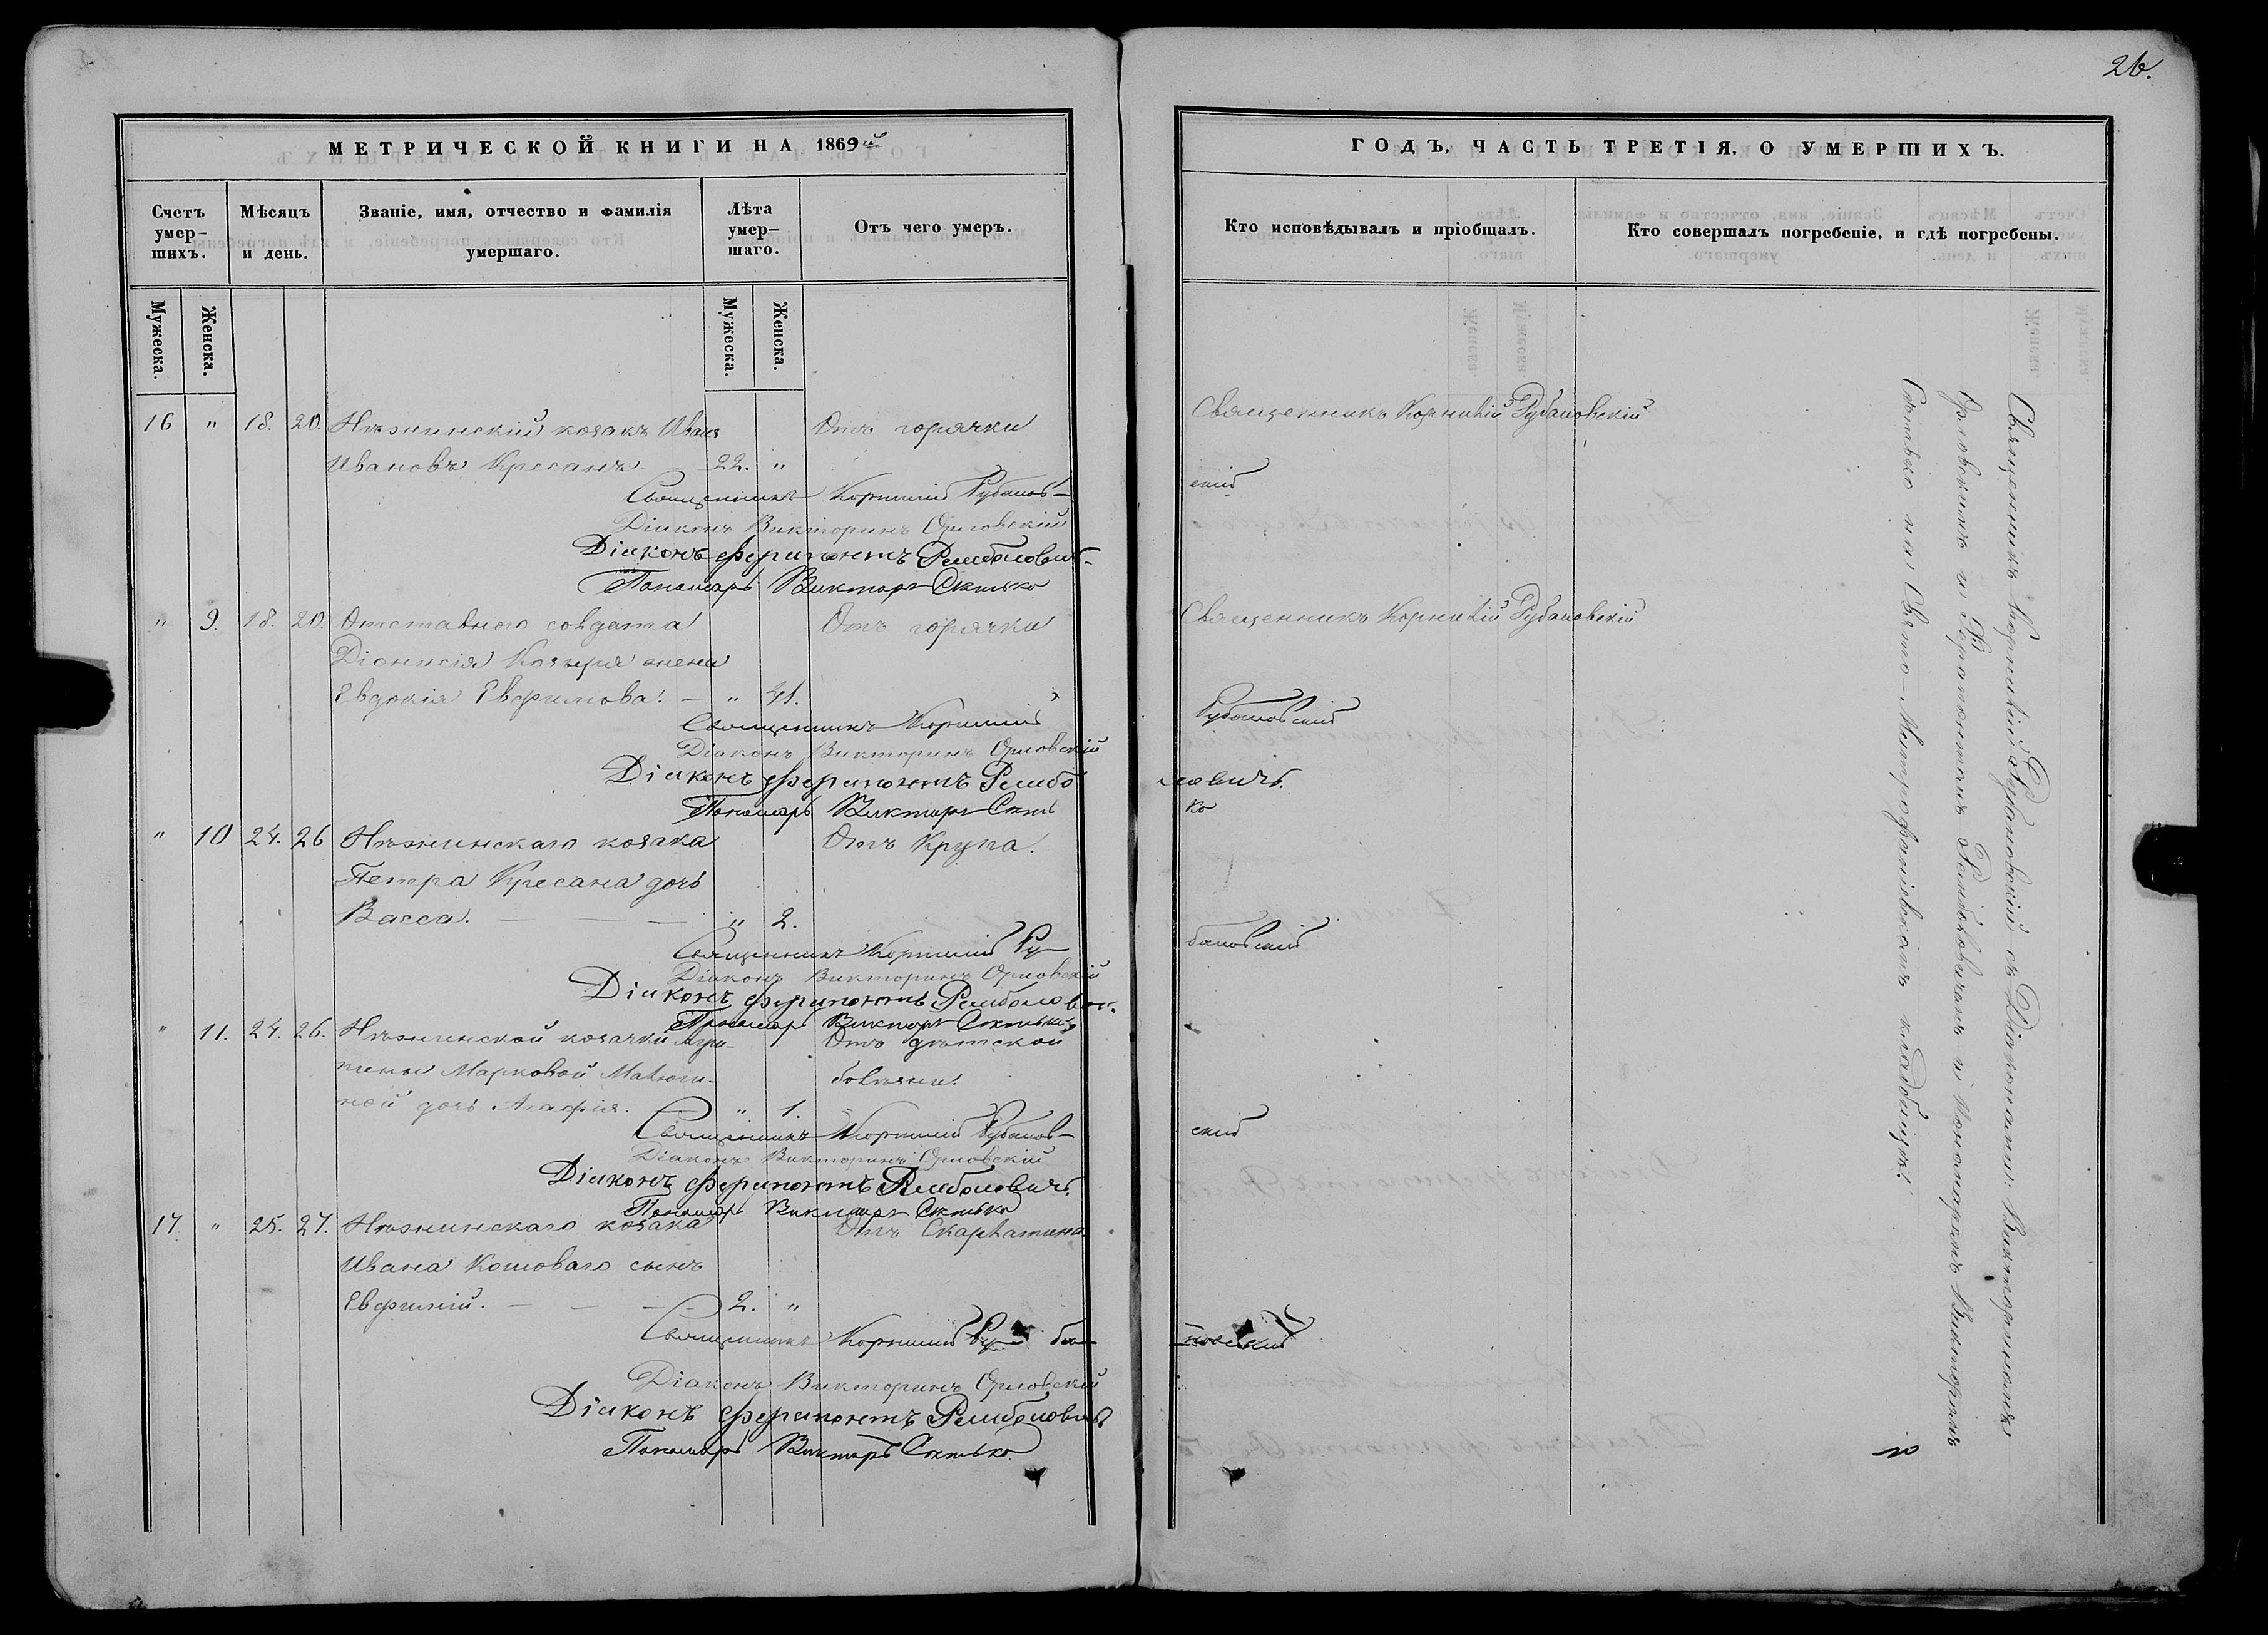 26.
МЕТРИЧЕСКОЙ КНИГИ НА 1869й
ГОДЪ, ЧАСТЬ ТРЕТІЯ, О УМЕРШИХЪ.
Счетъ умер-шихъ.
Мѣсяцъ и день.
Званіе, имя, отчество и фамилія умершаго.
Лѣта умер-шаго.
Отъ чего умеръ.
Кто исповѣдывалъ и пріобщалъ.
Кто совершалъ погребеніе, и гдѣ погребены.
Мужеска.
Женска.
Мужеска.
Женска.
16 " 18. 20. Нѣжинскій козакъ Иванъ Отъ горячки Священникъ Корнилій Рубановскій
Ивановъ Кресанъ 22. "
Священникъ Корнилій Рубанов-скій
Діаконъ Викторинъ Орловскій
Діаконъ Ферапонтъ Рембаловичъ
Пономарь Викторъ
" 9. 18. 20. Отставнаго солдата Отъ горячки Священникъ Корнилій Рубановскій
Діонисія жена
Евдокія Евфимова. — "
Священникъ Корнилій Рубановскій
Діаконъ Викторинъ Орловскій
Діаконъ Ферапонтъ Рембаловичъ.
Пономарь Викторъ
" 10 24. 26 Нѣжинскаго козака Отъ Крупа.
Петра Кресана дочь
Васса. — — — " 2.
Священникъ Корнилій Рубановскій
Діаконъ Викторинъ Орловскій
Діаконъ Ферапонтъ Рембаловичъ.
Пономарь Викторъ
" 11. 24. 26. Нѣжинской козачки Агри- Отъ дѣтской
пины Марковой болѣзни.
дочь Агафія. — " 1.
Священникъ Корнилій Рубанов-скій
Діаконъ Викторинъ Орловскій
Діаконъ Ферапонтъ Рембаловичъ.
Пономарь Викторъ
17. " 25. 27. Нѣжинскаго козака Отъ Скарлатина
Ивана Кошоваго сынъ
Евфимій. — — — 2. "
Священникъ Корнилій Рубановскій
Діаконъ Викторинъ Орловскій
Діаконъ Ферапонтъ Рембаловичъ
Пономарь Викторъ
Священникъ Корнилій Рубановскій съ Діаконами: Викториномъ
Орловскимъ и Ферапонтомъ Рембаловичемъ и Пономаремъ Викторомъ
на Свято-Митрофаніевскомъ кладбищѣ.